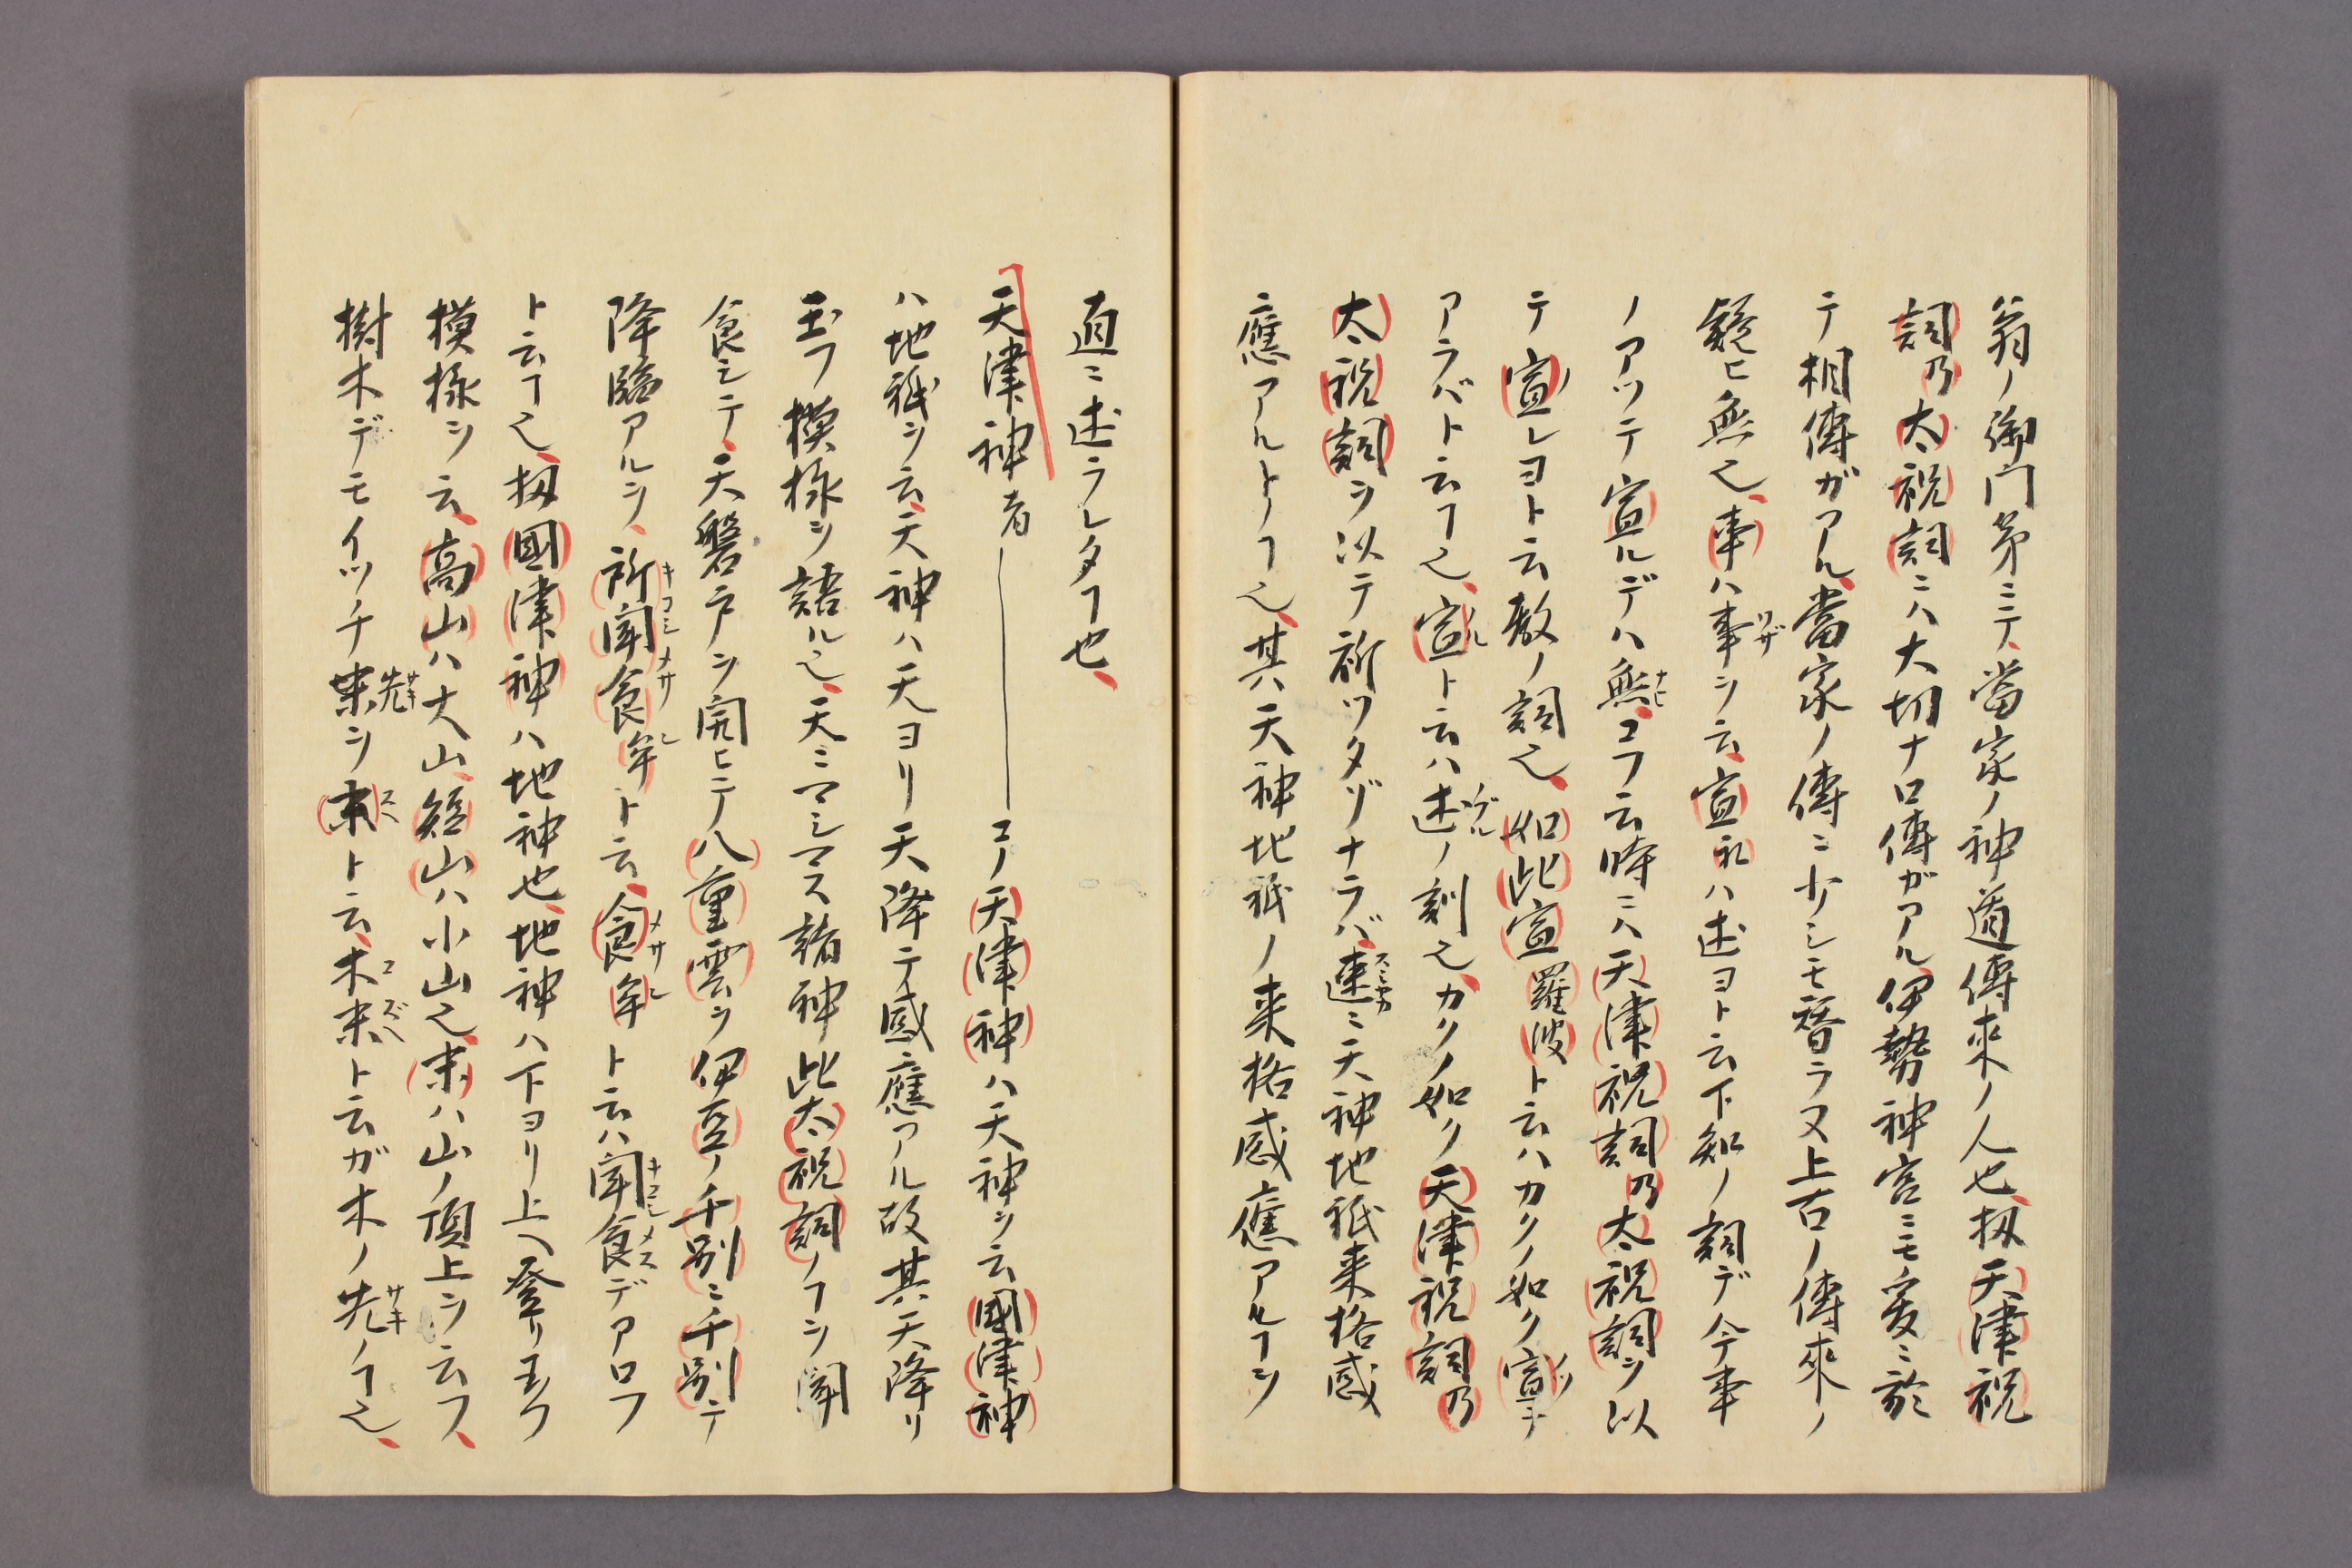 翁ノ御門弟ニテ、當家ノ神道傳來ノ人也、扨天津祝
詞乃太祝詞ニハ大切ナ口傳ガアル、伊勢神宮ニモ爰ニ於
テ相傳ガアル、當家ノ傳ニ少シモ替ラヌ上古ノ傳來ノ
疑ヒ無シ、事ハ事ヲ云、宣礼ハ述ヨト云下知ノ詞デ今事
ノアツテ宣ルデハ無、コヽヲ云時ニハ天津祝詞乃太祝詞ヲ以
テ宣レヨト云教ノ詞也、如此宣羅波ト云ハカクノ如ク宣ラ
アラバト云ヿ也、宣ト云ハ述ノ訓也、カクノ如ク天津祝詞乃
太祝詞ヲ以テ祈ツタゾナラバ、速ニ天神地祇来格感
應アルトノヿ也、其ハ天神地祇ノ来格感應アルヿヲ
直ニ述ラレタヿ也、
天津神者――コノ天津神ハ天神ヲ云、國津神
ハ地祇ヲ云、天神ハ天ヨリ天降テ感應アル故其天降リ
玉フ模様ヲ語ル也、天ニマシマス諸神此太祝詞ノヿヲ聞
食シテ、天磐戸ヲ開ヒテ八重雲ヲ伊豆ノ千別ニ千別テ
降臨アルヲ、所聞食牟ト云、食牟ト云ハ聞食デアロフ
ト云ヿ也、扨國津神ハ地神也、地神ハ下ヨリ上ヘ登リ玉フ
模様ヲ云、高山ハ大山、短山ハ小山也、末ハ山ノ頂上ヲ云フ、
樹木デモイツチ先末ヲ末ト云、木末ト云ガ木ノ先ノヿ也、